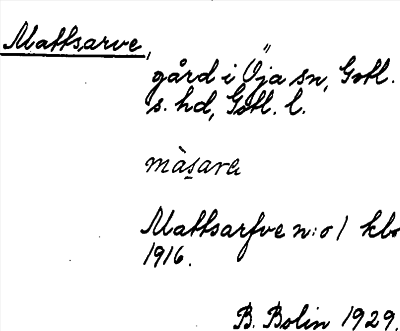 Mattsarve,
gård i Öja sn, Gotl.
s. hd, Gotl. l.
màs̱arɐ
Mattsarfve n:o 1 kbr
1916.
B. Bolin 1929.